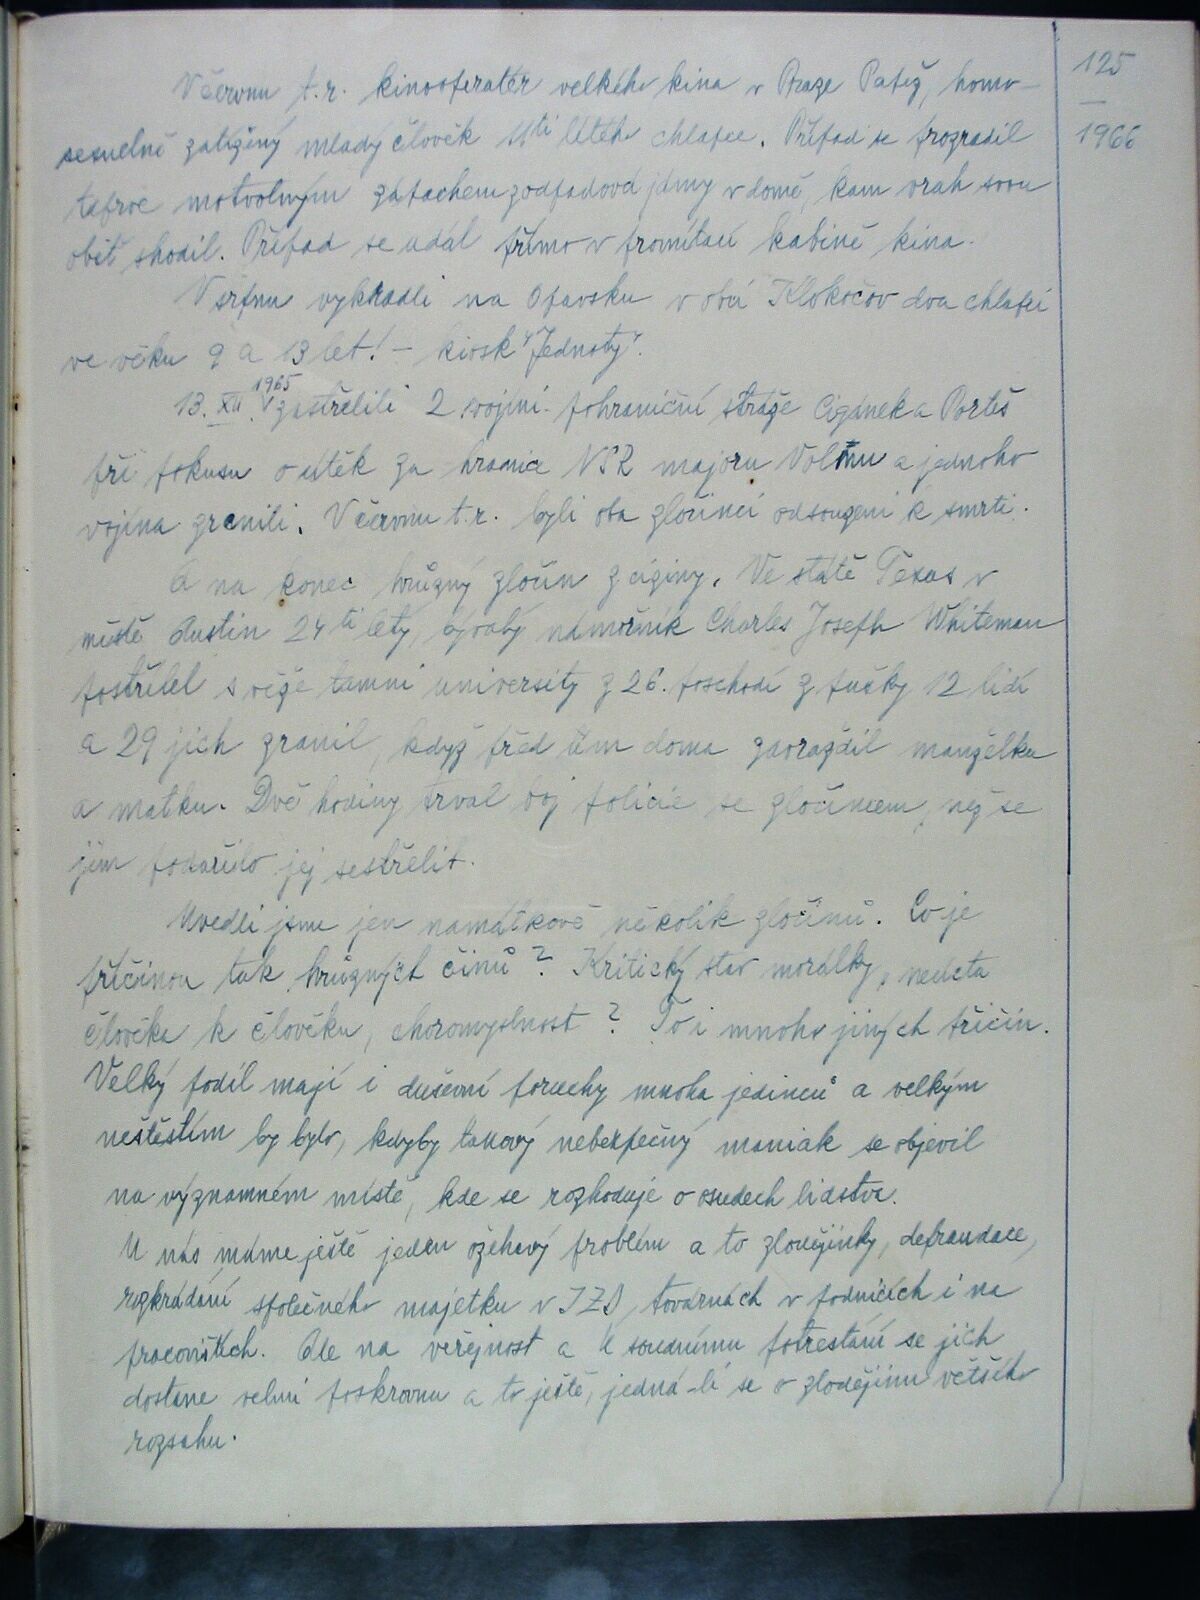 125
—
1966
V červnu t.r. kinooperatér velkého kina v Praze Patěž, homo-
sexuelně zatížený mladý člověk 11ti letého chlapce. Případ se prozradil
teprve zápachem z odpadové jámy v domě, kam vrah svou
oběť shodil. Případ se udál přímo v promítací kabině kina.
V srpnu vykradli na Opavsku v obci Klokočov dva chlapci
ve věku 9 a 13 let! – kiosk "Jednoty".
13. XII. 1965 zastřelili 2 vojíni pohraniční stráže Cigánek a Porteš
při pokusu o útěk za hranice NSR majora a jednoho
vojína zranili. V červnu t.r. byli oba zločinci odsouzeni k smrti.
A na konec hrůzný zločin z ciziny. Ve státě Texas v
městě Austin 24 ti letý, bývalý námořník Charles Joseph Whiteman
postřílel s věže tamní university z 26. poschodí z pušky 12 lidí
a 29 jich zranil, když před tím doma zavraždil manželku
a matku. Dvě hodiny trval boj policie se zločincem, než se
jim podařilo jej sestřelit.
Uvedli jsme jen namátkově několik zločinů. Co je
příčinou tak hrůzných činů? Kritický stav morálky, neúcta
člověka k člověku, choromyslnost? To i mnoho jiných příčin.
Velký podíl mají i duševní poruchy mnoha jedinců a velkým
neštěstím by bylo, kdyby takový nebezpečný maniak se objevil
na významném místě, kde se rozhoduje o osudech lidstva.
U nás máme ještě jeden ožehavý problém a to zlodějinky, defraudace,
rozkrádání společného majetku v JZD, továrnách v podnicích i na
pracovištích. Ale na veřejnost a k soudnímu potrestání se jich
dostane velmi poskrovnu a to ještě, jedná-li se o zlodějinu většího
rozsahu.